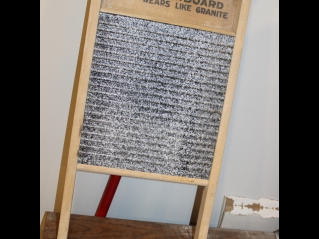 BOARD
WEARS LIKE GRANITE